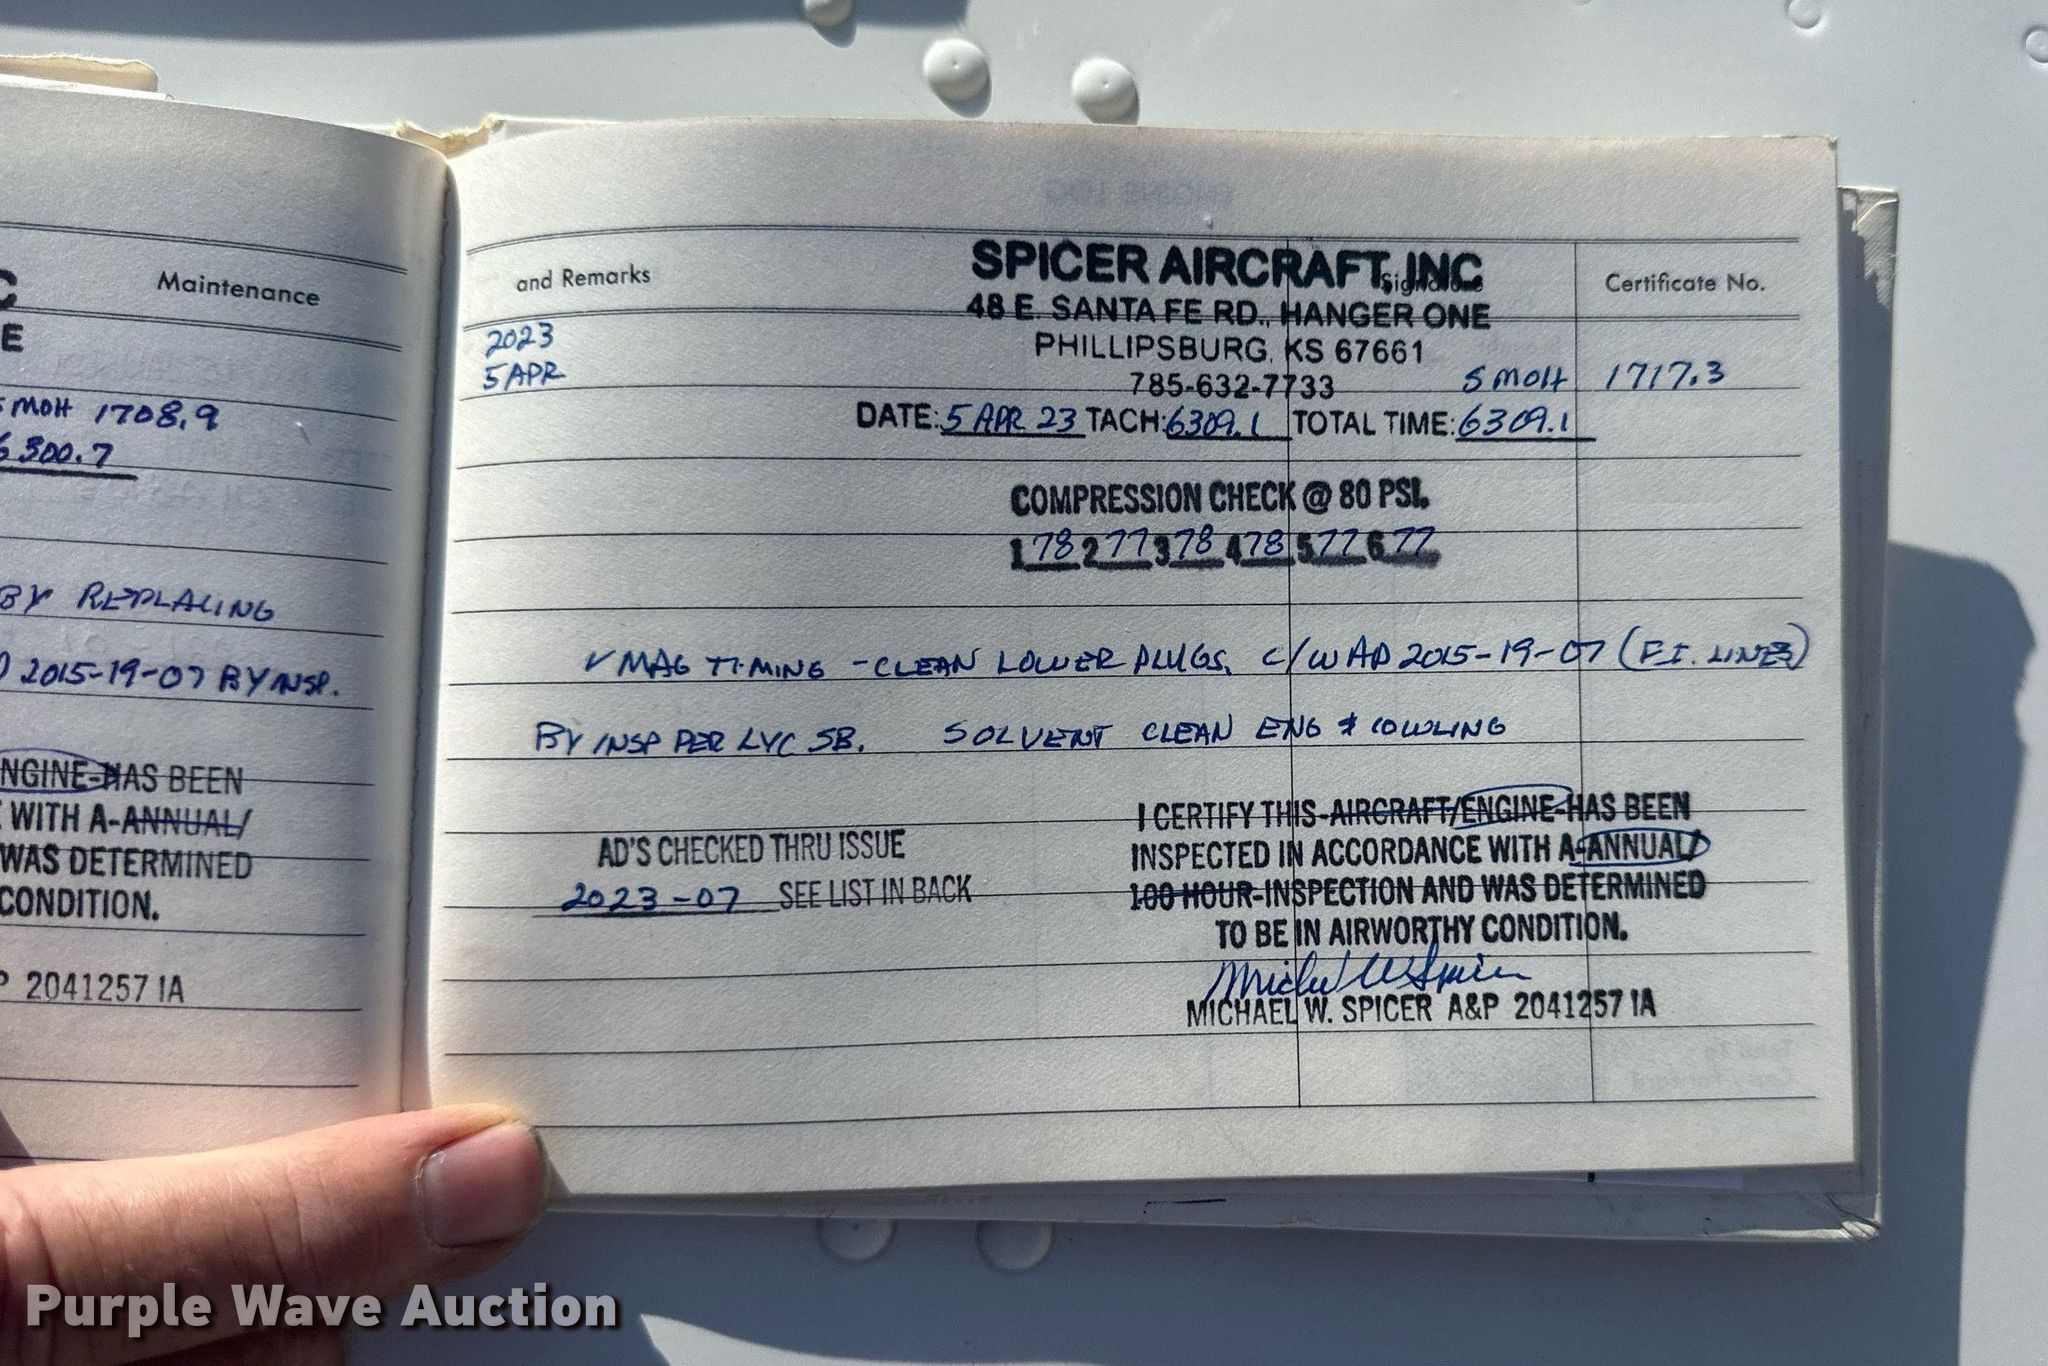 Maintenance
E
SMOH 1708.9
6300.7
BY REPLACING
2015-19-07 BY INSP.
ENGINE-HAS BEEN
WITH A-ANNUAL/
WAS DETERMINED
CONDITION.
P 2041257 IA
and Remarks
Certificate No.
SPICER AIRCRAFT, INC
48 E. SANTA FE RD., HANGER ONE
2023
PHILLIPSBURG, KS 67661
5 APR
SMOH 1717.3
785-632-7733
DATE: 5 APR 23 TACH: 6309.1 TOTAL TIME: 6309.1
COMPRESSION CHECK @ 80 PSI.
1 78 2 77 3 78 4 78 5 77 6 77
✓ MAG TIMING - CLEAN LOWER PLUGS. C/W AD 2015-19-07 (F.I. LINES)
BY INSP PER LYC SB. SOLVENT CLEAN ENG & COWLING
AD'S CHECKED THRU ISSUE
2023-07 SEE LIST IN BACK
I CERTIFY THIS-AIRCRAFT/ENGINE-HAS BEEN
INSPECTED IN ACCORDANCE WITH A-ANNUAL/
100 HOUR-INSPECTION AND WAS DETERMINED
TO BE IN AIRWORTHY CONDITION.
Michael W Spicer
MICHAEL W. SPICER A&P 2041257 IA
Purple Wave Auction